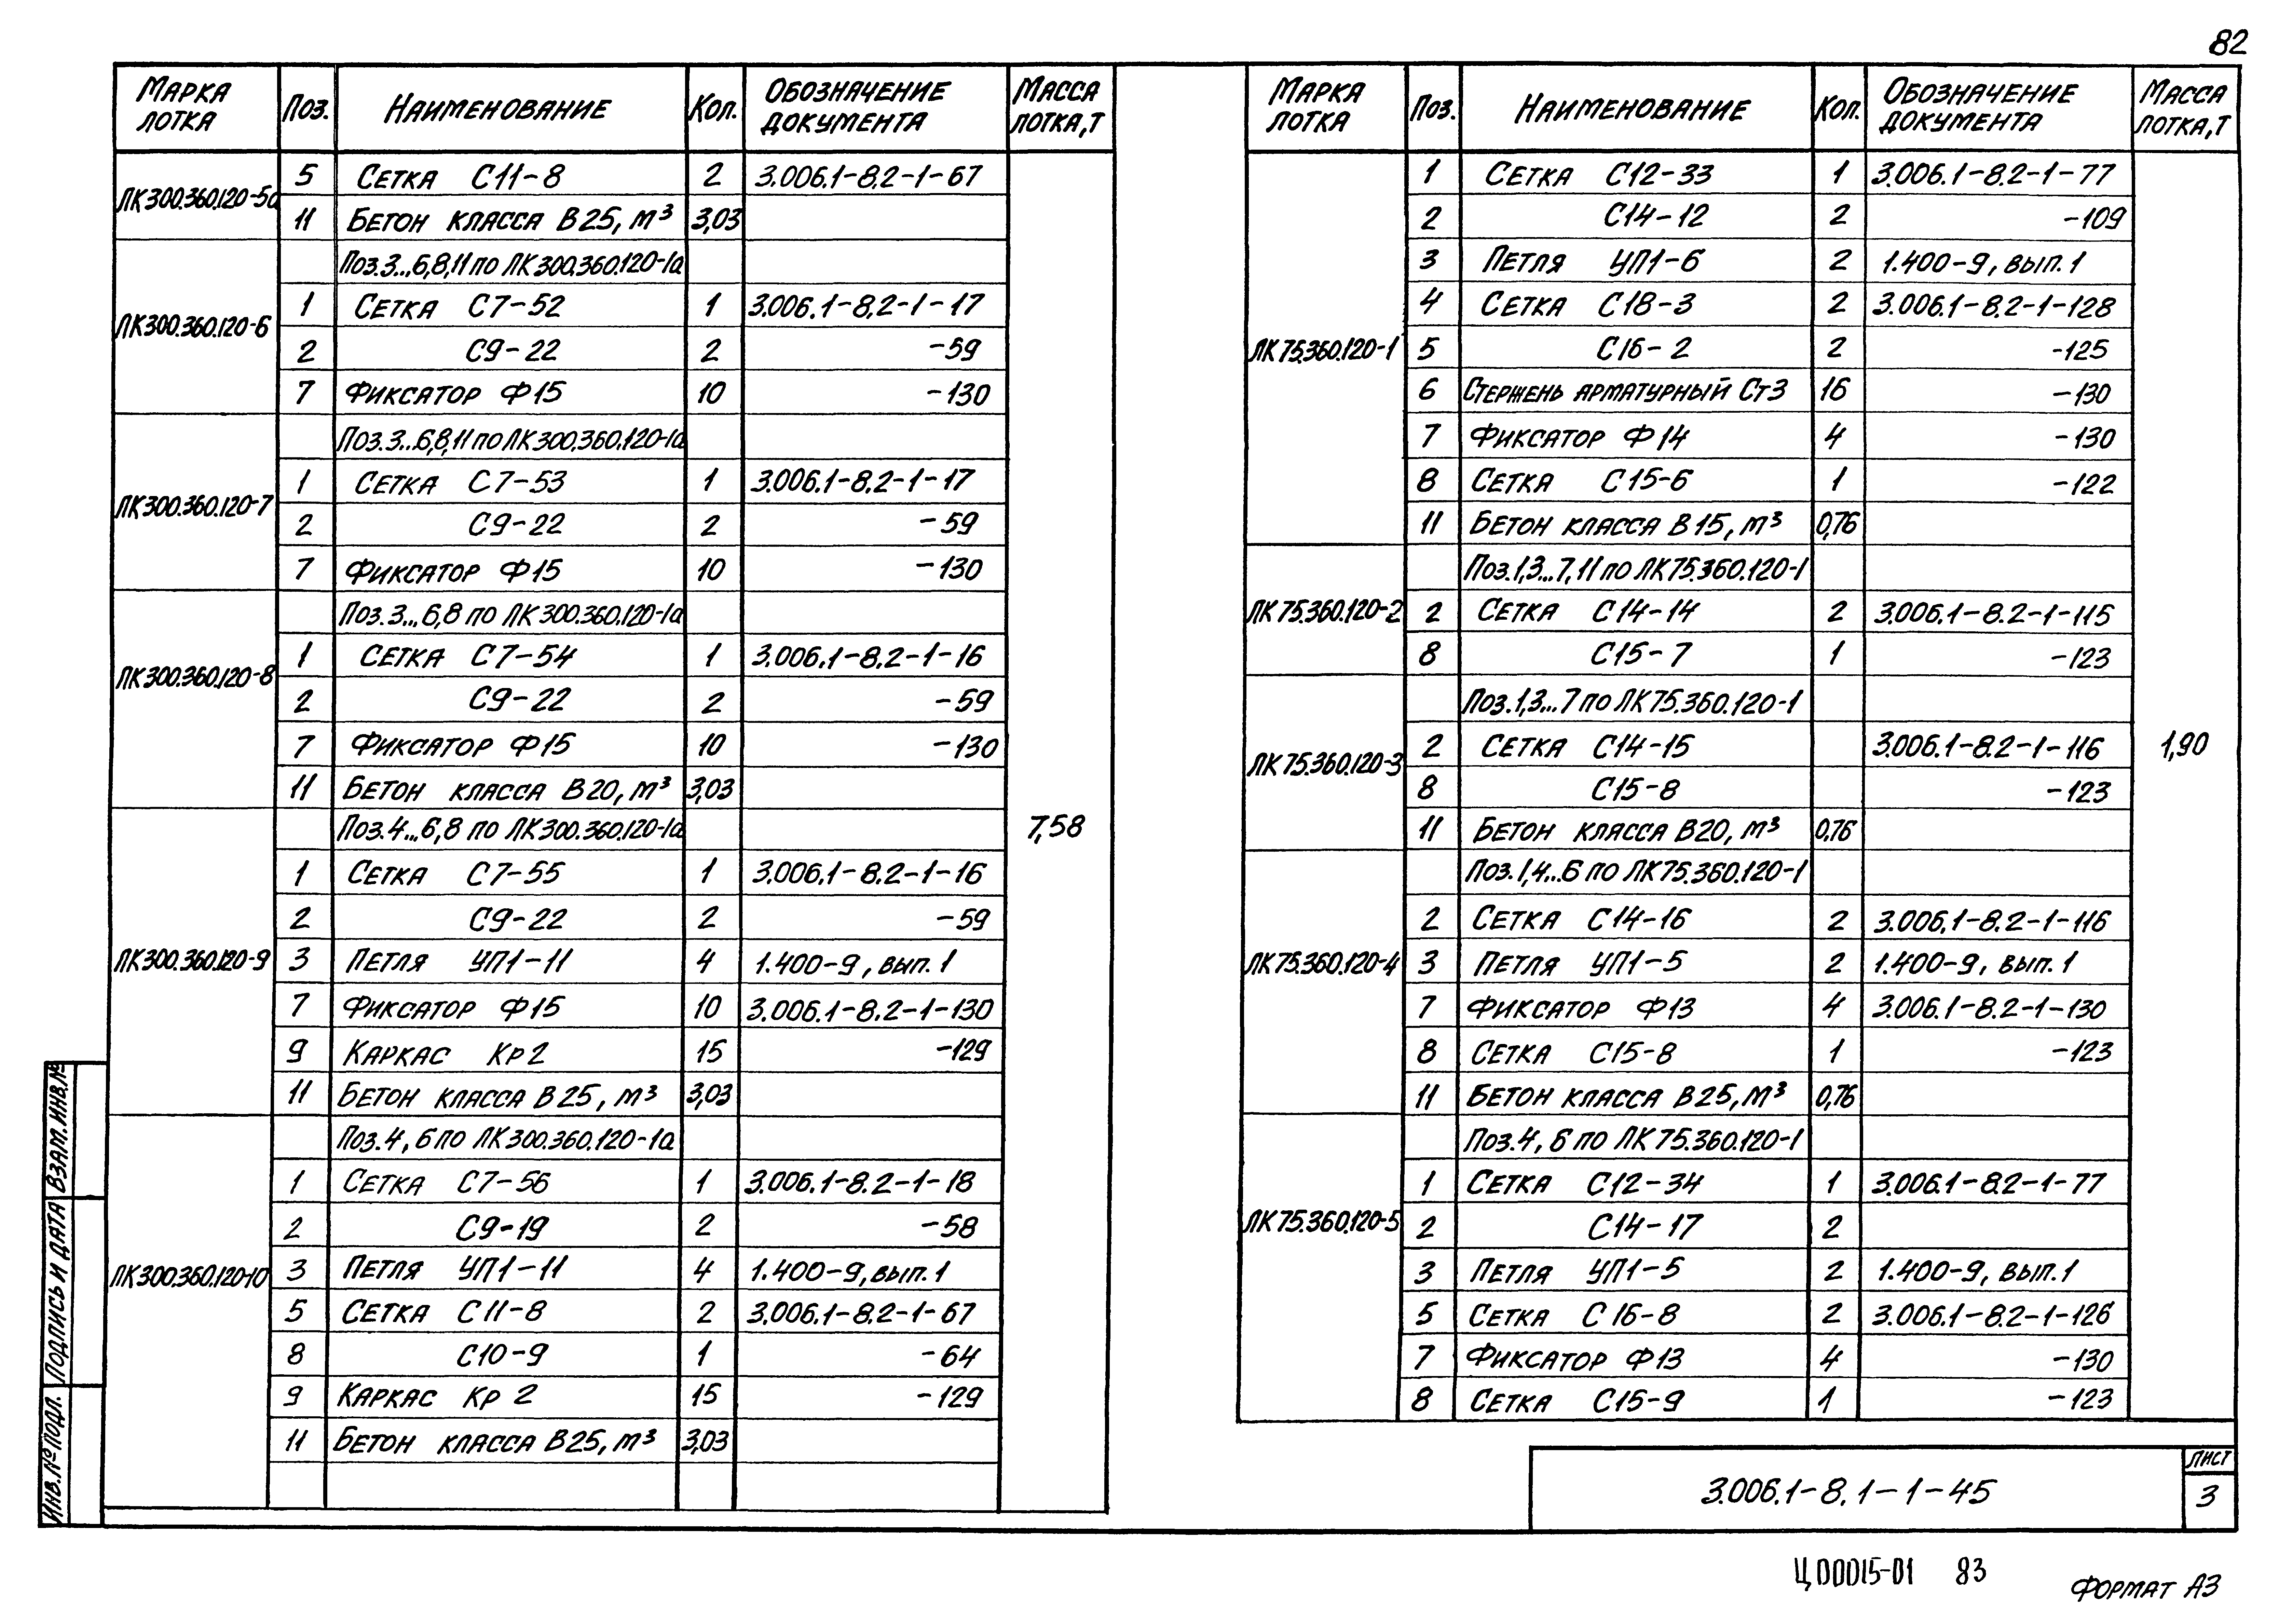 82
Марка лотка | Поз. | Наименование | Кол. | Обозначение документа | Масса лотка, т
ЛК300.360.120-5а | 5 | Сетка С11-8 | 2 | 3.006.1-8.2-1-67
11 | Бетон класса В25, м³ | 3,03
ЛК300.360.120-6 | Поз.3...6,8,11 по ЛК300.360.120-1а
1 | Сетка С7-52 | 1 | 3.006.1-8.2-1-17
2 | С9-22 | 2 | -59
7 | Фиксатор Ф15 | 10 | -130
ЛК300.360.120-7 | Поз.3...6,8,11 по ЛК300.360.120-1а
1 | Сетка С7-53 | 1 | 3.006.1-8.2-1-17
2 | С9-22 | 2 | -59
7 | Фиксатор Ф15 | 10 | -130
ЛК300.360.120-8 | Поз.3...6,8 по ЛК300.360.120-1а
1 | Сетка С7-54 | 1 | 3.006.1-8.2-1-16
2 | С9-22 | 2 | -59
7 | Фиксатор Ф15 | 10 | -130
11 | Бетон класса В20, м³ | 3,03
ЛК300.360.120-9 | Поз.4...6,8 по ЛК300.360.120-1а | 7,58
1 | Сетка С7-55 | 1 | 3.006.1-8.2-1-16
2 | С9-22 | 2 | -59
3 | Петля УП1-11 | 4 | 1.400-9, вып.1
7 | Фиксатор Ф15 | 10 | 3.006.1-8.2-1-130
9 | Каркас Кр2 | 15 | -129
11 | Бетон класса В25, м³ | 3,03
ЛК300.360.120-10 | Поз.4, 6 по ЛК300.360.120-1а
1 | Сетка С7-56 | 1 | 3.006.1-8.2-1-18
2 | С9-19 | 2 | -58
3 | Петля УП1-11 | 4 | 1.400-9, вып.1
5 | Сетка С11-8 | 2 | 3.006.1-8.2-1-67
8 | С10-9 | 1 | -64
9 | Каркас Кр 2 | 15 | -129
11 | Бетон класса В25, м³ | 3,03
Марка лотка | Поз. | Наименование | Кол. | Обозначение документа | Масса лотка, т
ЛК75.360.120-1 | 1 | Сетка С12-33 | 1 | 3.006.1-8.2-1-77
2 | С14-12 | 2 | -109
3 | Петля УП1-6 | 2 | 1.400-9, вып.1
4 | Сетка С18-3 | 2 | 3.006.1-8.2-1-128
5 | С16-2 | 2 | -125
6 | Стержень арматурный Ст3 | 16 | -130
7 | Фиксатор Ф14 | 4 | -130
8 | Сетка С15-6 | 1 | -122
11 | Бетон класса В15, м³ | 0,76
ЛК75.360.120-2 | Поз.1,3...7,11 по ЛК75.360.120-1
2 | Сетка С14-14 | 2 | 3.006.1-8.2-1-115
8 | С15-7 | 1 | -123
ЛК75.360.120-3 | Поз.1,3...7 по ЛК75.360.120-1
2 | Сетка С14-15 | 3.006.1-8.2-1-116 | 1,90
8 | С15-8 | -123
11 | Бетон класса В20, м³ | 0,76
ЛК75.360.120-4 | Поз.1,4...6 по ЛК75.360.120-1
2 | Сетка С14-16 | 2 | 3.006.1-8.2-1-116
3 | Петля УП1-5 | 2 | 1.400-9, вып.1
7 | Фиксатор Ф13 | 4 | 3.006.1-8.2-1-130
8 | Сетка С15-8 | 1 | -123
11 | Бетон класса В25, м³ | 0,76
ЛК75.360.120-5 | Поз.4, 6 по ЛК75.360.120-1
1 | Сетка С12-34 | 1 | 3.006.1-8.2-1-77
2 | С14-17 | 2
3 | Петля УП1-5 | 2 | 1.400-9, вып.1
5 | Сетка С16-8 | 2 | 3.006.1-8.2-1-126
7 | Фиксатор Ф13 | 4 | -130
8 | Сетка С15-9 | 1 | -123
Взам.инв.№
Подпись и дата
Инв.№ подл.
3.006.1-8.1-1-45
Лист
3
Ц00015-01 83
Формат А3